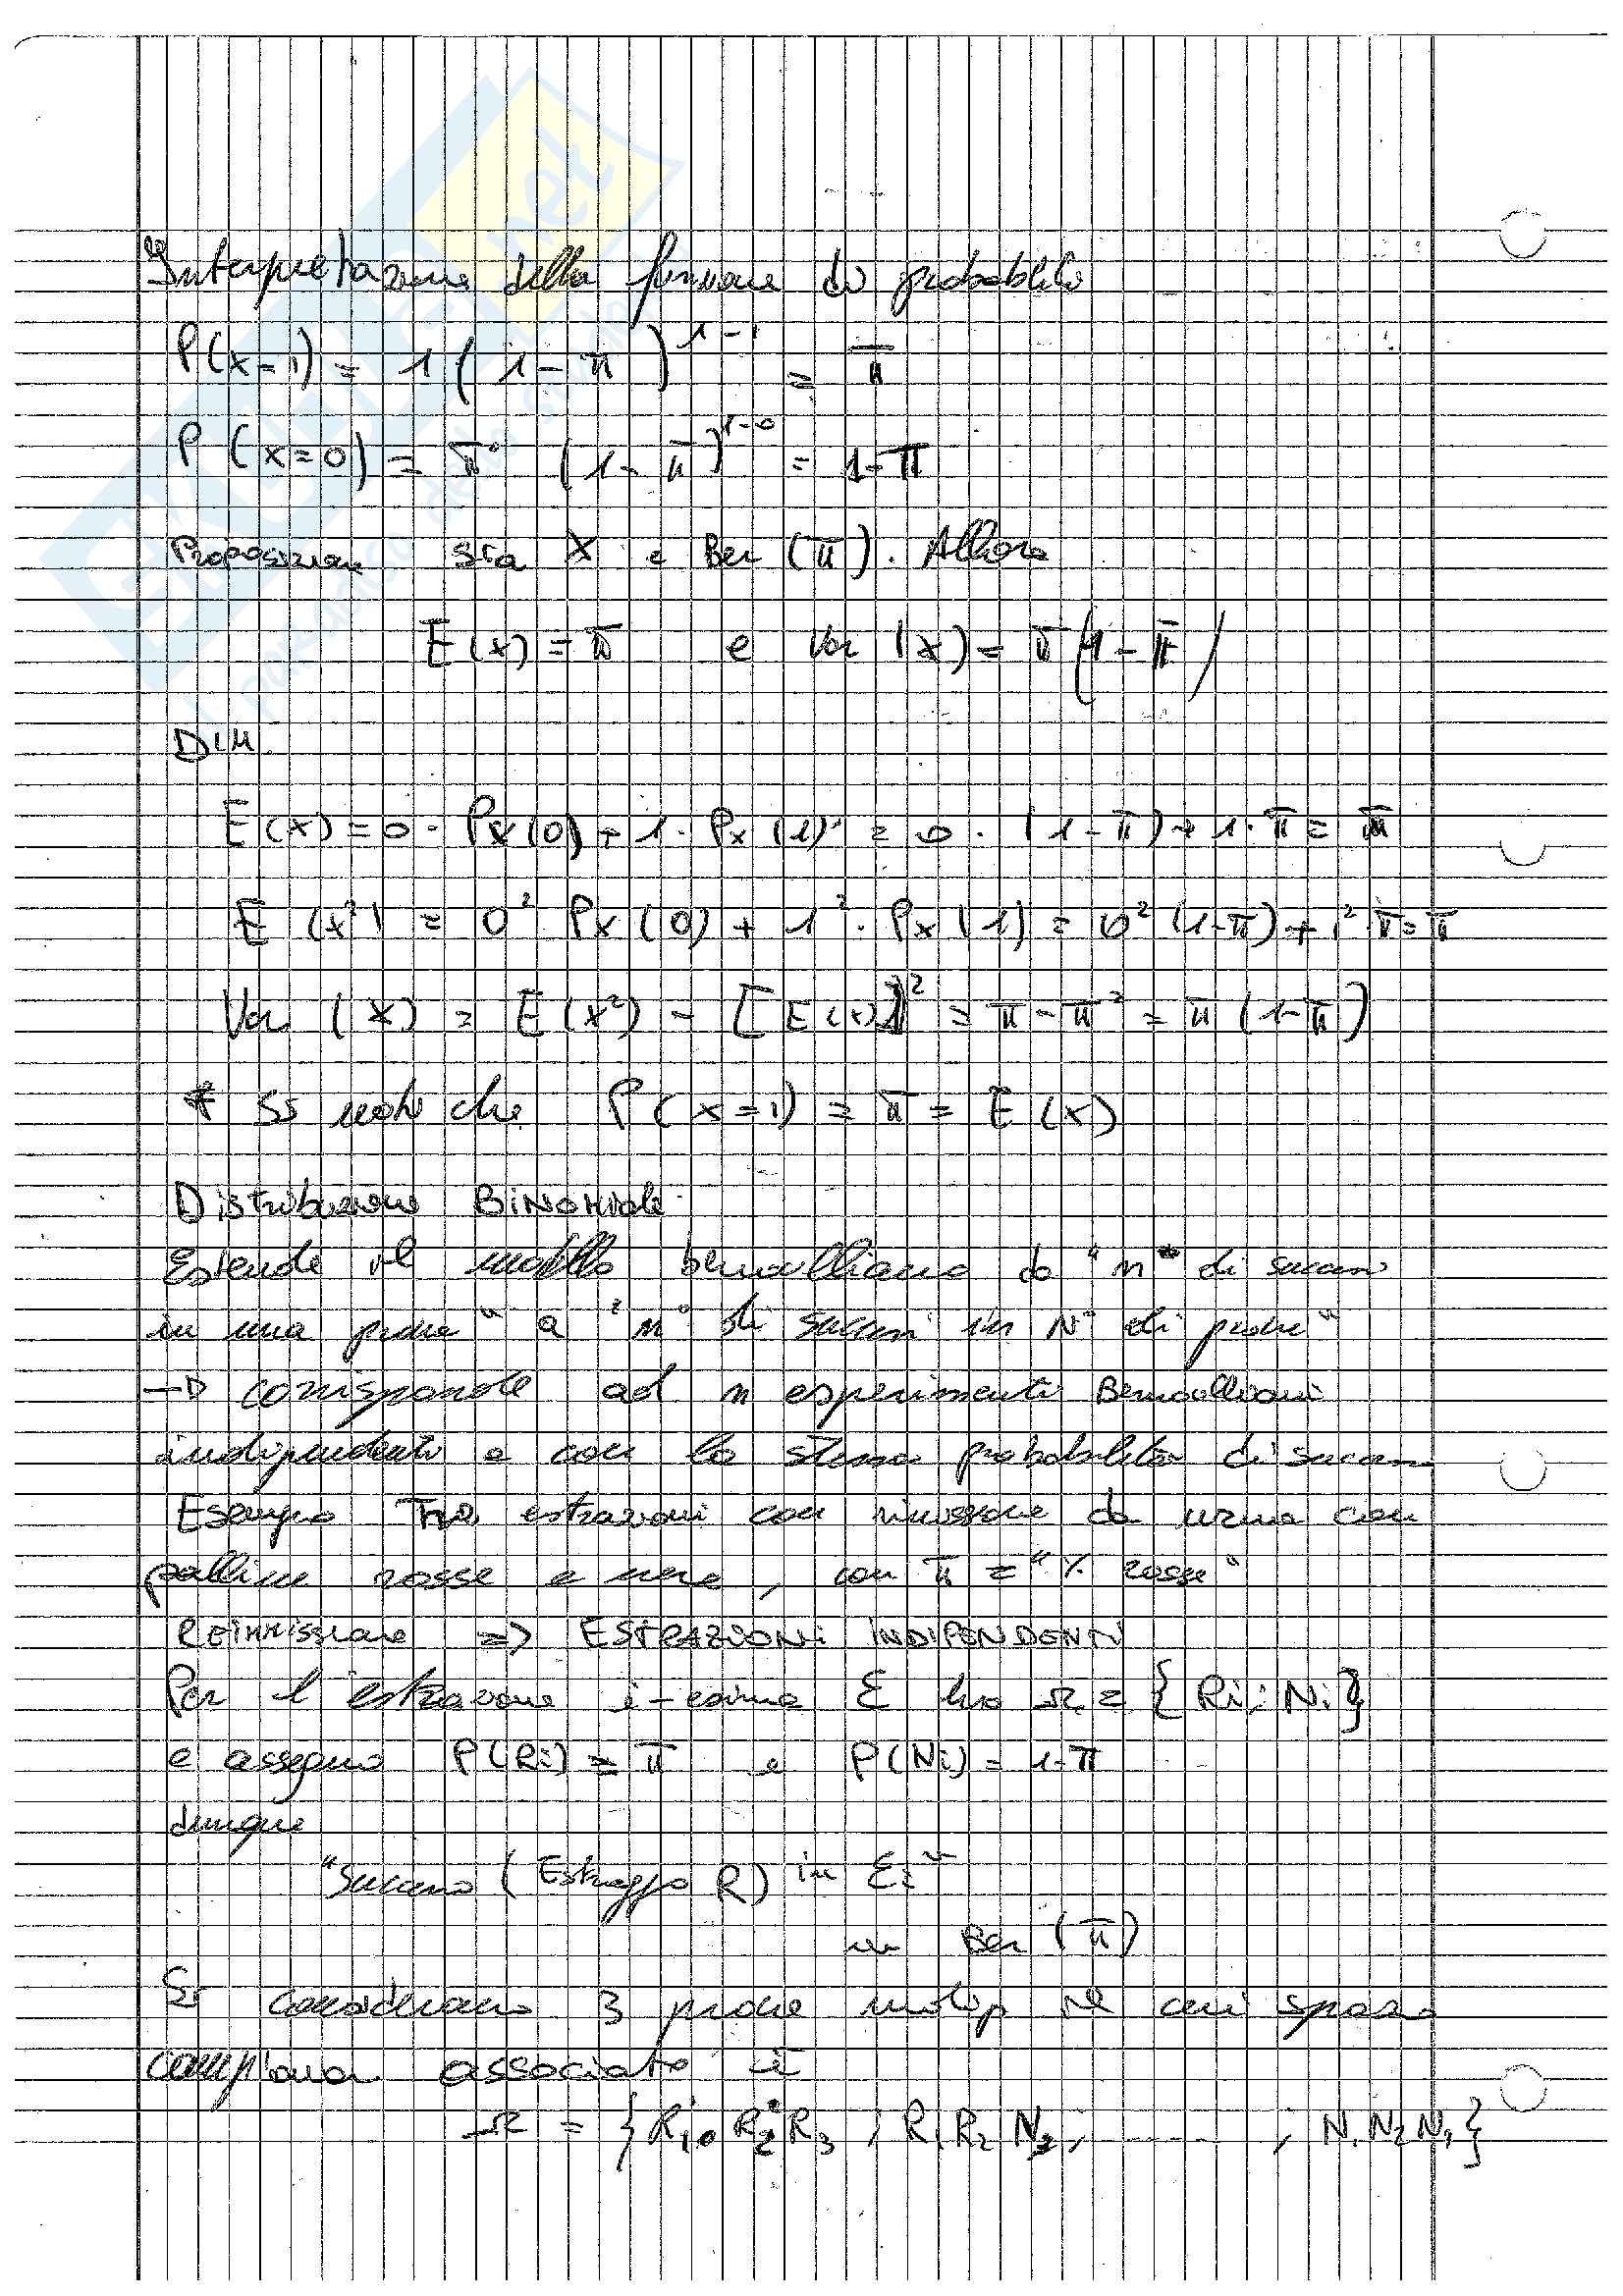 Interpretazione della funzione di probabilità
P(x=1) = 1 (1-π)^{1-1} = π
P(x=0) = π⁰ (1-π)^{1-0} = 1-π
Proposizione sia X e Ber (π). Allora
E(x) = π e Var (x) = π(1-π)
DIM.
E(x) = 0 · Px(0) + 1 · Px(1) = 0 · (1-π) + 1 · π = π
E(x²) = 0² Px(0) + 1² · Px(1) = 0² (1-π) + 1² π = π
Var (x) = E(x²) - [E(x)]² = π - π² = π(1-π)
* Si noti che P(x=1) = π = E(x)
Distribuzione BiNomiale
Estende il modello bernoulliano da "n° di successi
in una prova" a "n° di successi in N° di prove"
→ corrisponde ad n esperimenti Bernoulliani
indipendenti e con la stessa probabilità di successo
Esempio Tre estrazioni con rimissione da urna con
palline rosse e nere, con π = "% rosse"
Reimmissione => ESTRAZIONI INDIPENDENTI
Per l'estrazione i-esima E ho Ω = {Ri; Ni}
e assegno P(Ri) = π e P(Ni) = 1-π
dunque
"Successo (Estraggo R) in Ei"
Ber (π)
Si considerano 3 prove il cui spazio
campiona associato è
Ω = {R₁ R₂ R₃ ; R₁ R₂ N₃ ; ....... ; N₁ N₂ N₃}